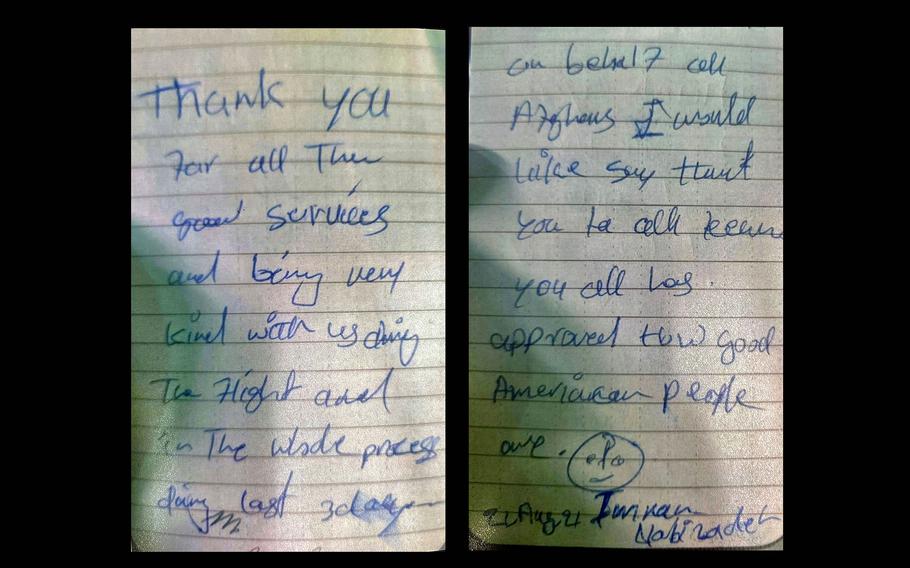 Thank you
For all The
good services
and being very
kind with us duing
The Flight and
in The whole process
duing last 3 day
on behalf all
Afghans I would
like say thank
you to all team
you all has
approved How good
Ameriacan people
are.
22 Aug 21 Imran
Nabizadeh